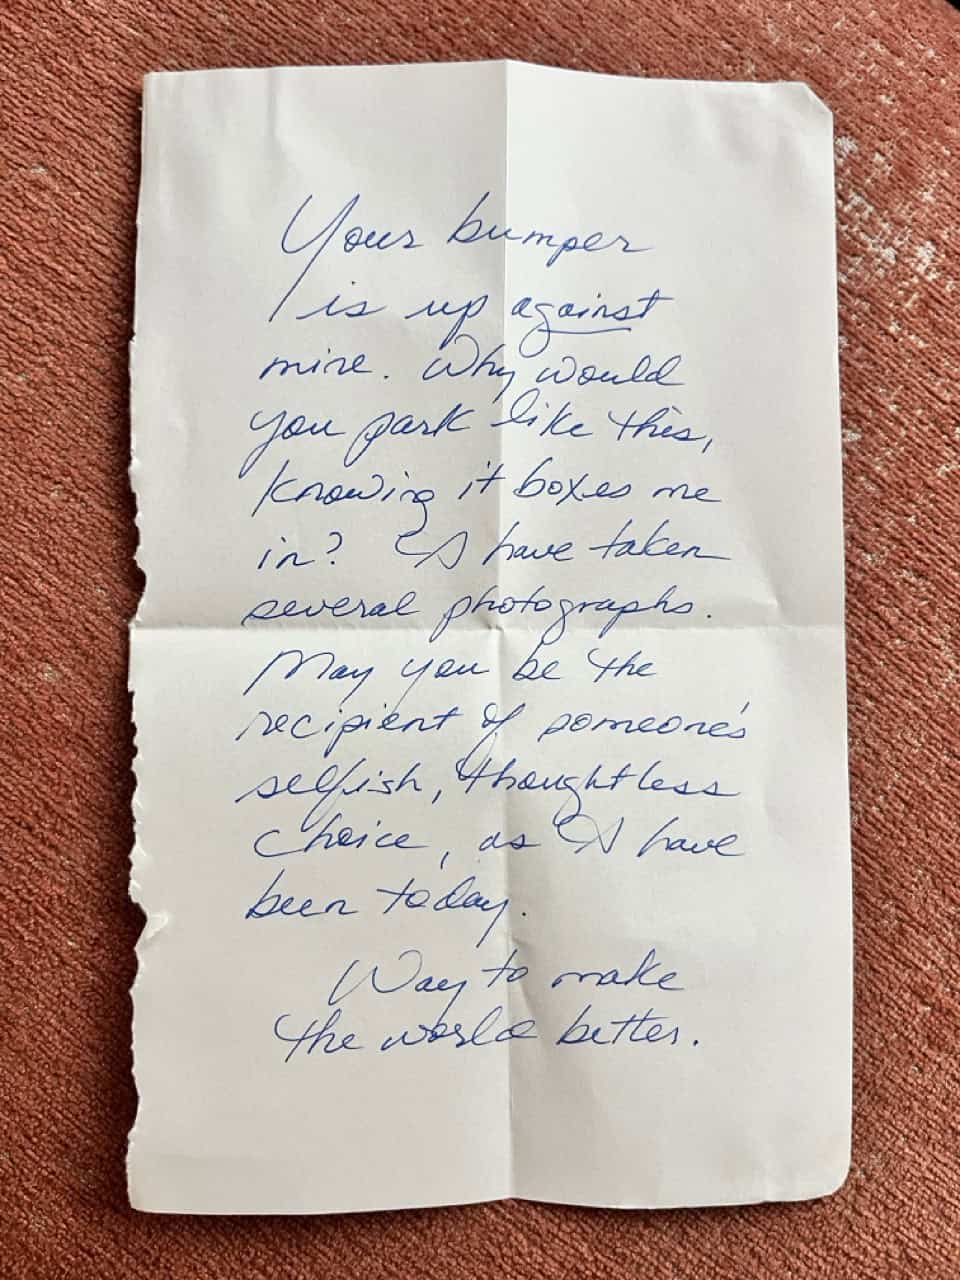 Your bumper
is up against
mine. Why would
you park like this,
knowing it boxes me
in? I have taken
several photographs.
May you be the
recipient of someone's
selfish, thoughtless
choice, as I have
been today.
Way to make
the world better.